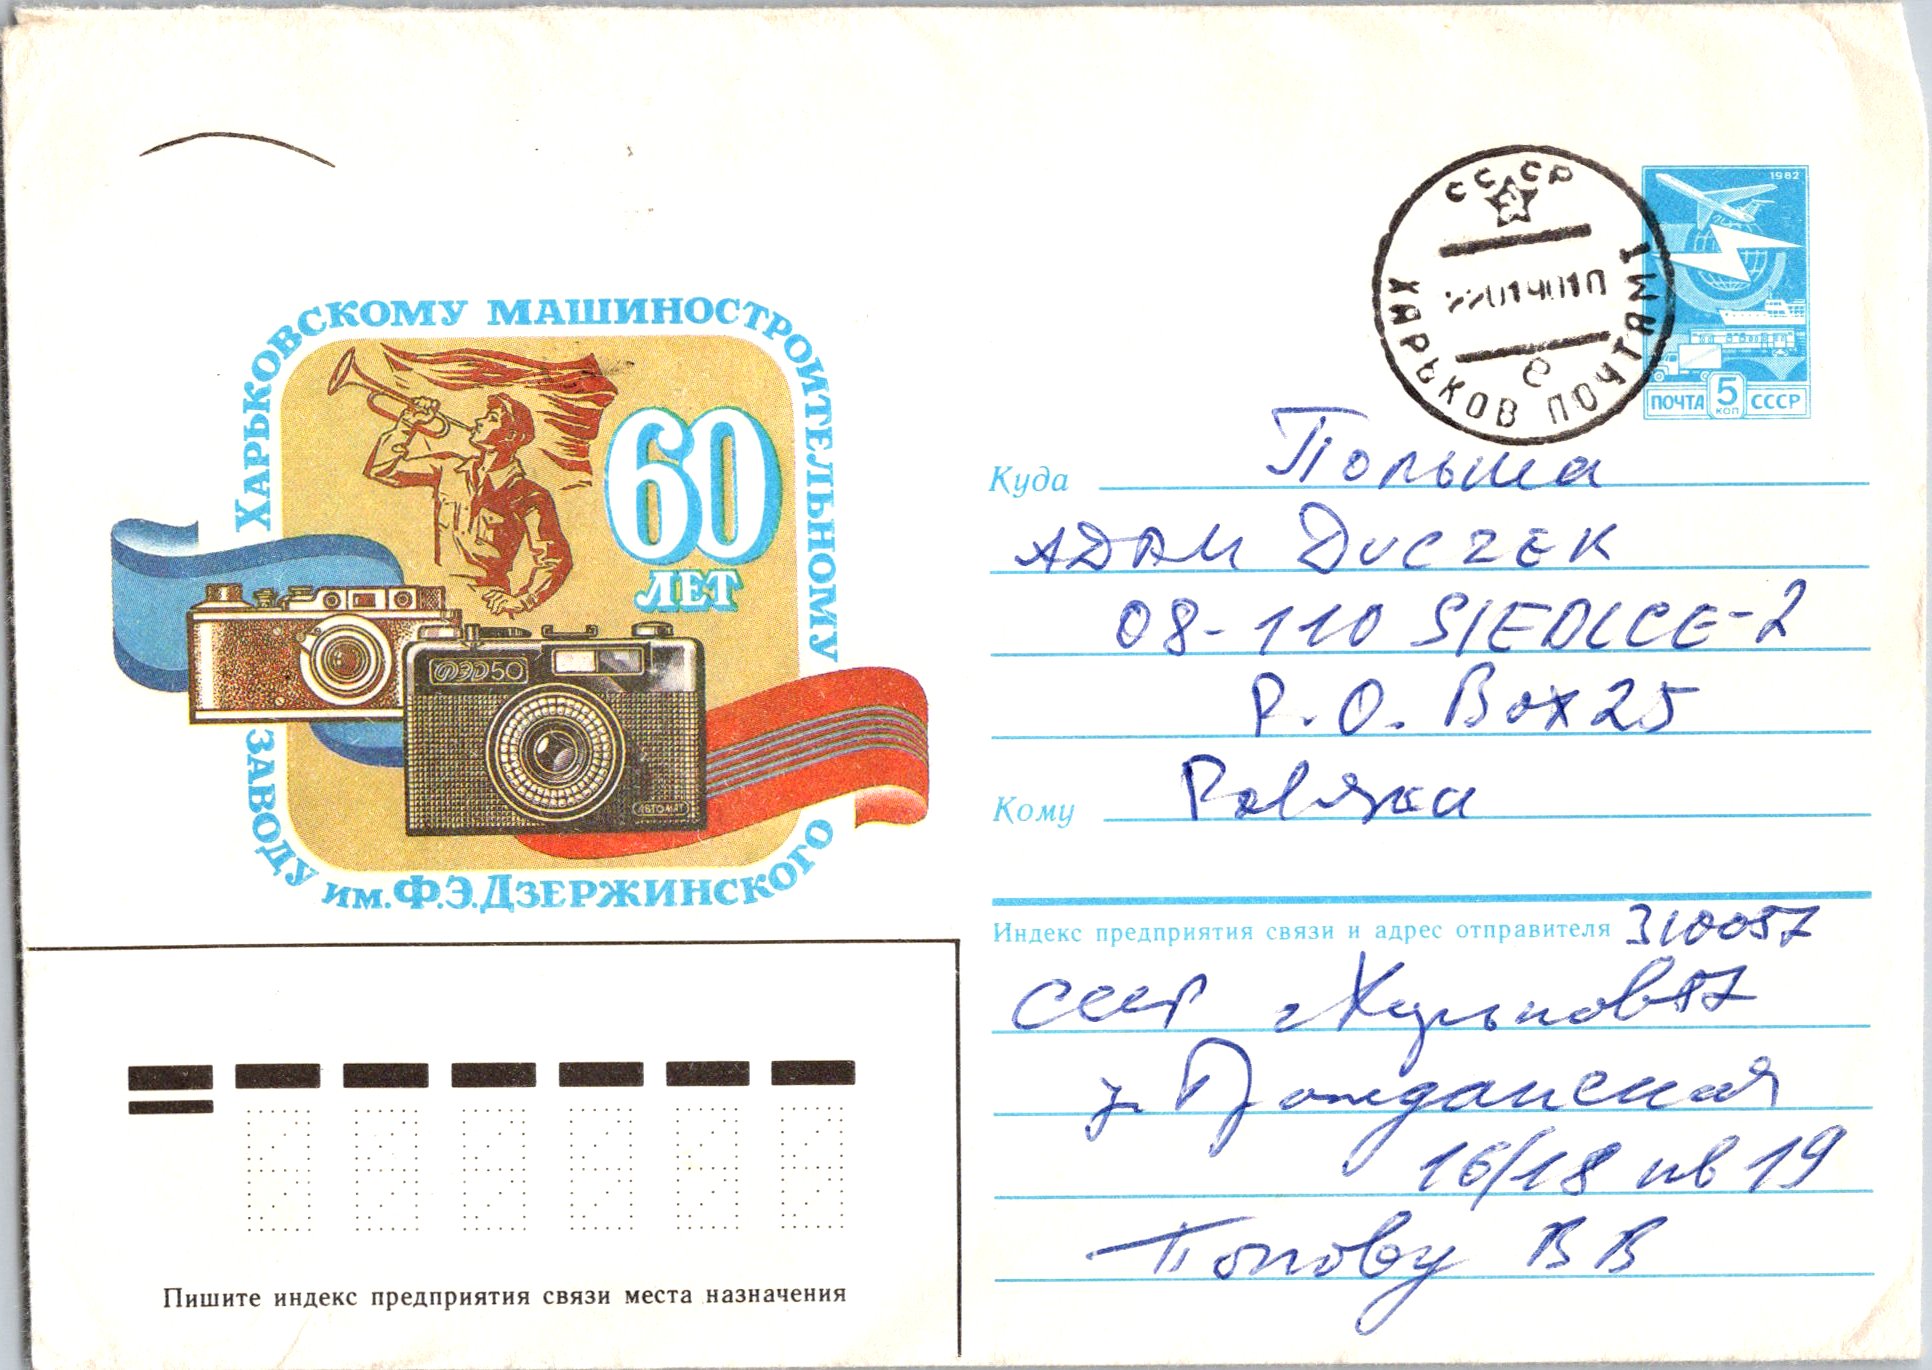 ХАРЬКОВСКОМУ МАШИНОСТРОИТЕЛЬНОМУ
ЗАВОДУ ИМ. Ф.Э. ДЗЕРЖИНСКОГО
60
ЛЕТ
ФЭД50
АВТОМАТ
СССР
ХАРЬКОВ ПОЧТАМТ
е
1982
ПОЧТА 5 КОП СССР
Куда Польша
ADAM DUCZEK
08-110 SIEDLCE-2
P.O. Box 25
Кому
Индекс предприятия связи и адрес отправителя 310057
СССР г Харьков 57
у. Гражданская
16/18 кв 19
Попову В В
Пишите индекс предприятия связи места назначения